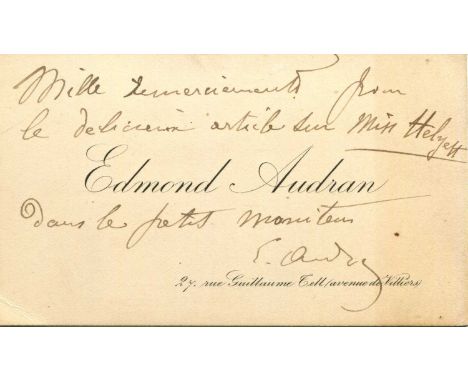 Mille remerciements pour
le délicieux article sur Miss Helyett
Edmond Audran
dans le petit moniteur
E. Audran
27. rue Guillaume Tell (avenue de Villiers)